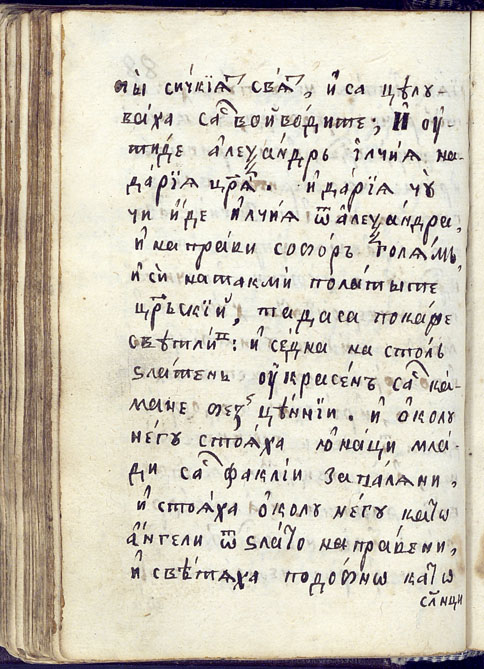 ты сичкїѧ свѧ, и са цѣлу-
ваха са войводите; И ѹ-
тиде алеѯандрь їлчиѧ на
дарїѧ црѧ. и дарїѧ чꙋ
чи иде илчиѧ ѿ алеѯандра,
и направи соборъ голѧмь,
и си натакми полатыте
црьскїй, та даса покаре
свѣтли: и седна на столь
златень ѹкрасенъ са ка-
мане без цѣнїи. и околу
негу стоѧха юнаци мла-
ди са факлїи запалѧни,
и стоѧха околу негу като
ангели ѿ злато направени,
и свѣтѧха подобнѡ катѡ
слнци